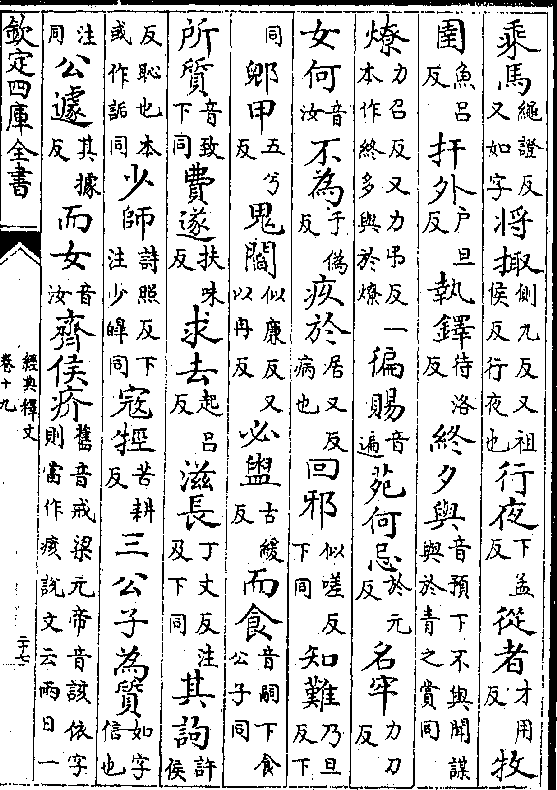 乘馬繩證反又如字將掫側九反又祖侯反行夜也行夜下孟反從者才用反牧
圉魚呂反扞外戶旦反執鐸待洛反終夕與音預下不與聞謀與於青之賞同
燎力召反又力弔反一本作終多與於燎徧賜音遍苑何忌於元反名牢力刀反
女何音汝不為于偽反疚於居又反病也回邪似嗟反下同知難乃旦反下
同郹甲五兮反鬼閻似廉反又以冉反必盥古緩反而食音嗣下食公子同
所質音致下同費遂扶味反求去起呂反滋長丁丈反注及下同其訽許侯
反恥也本或作詬同少師詩照反下注少皡同寇牼苦耕反三公子為質如字信也
注同公遽其據反而女音汝齊侯疥舊音戒梁元帝音該依字則當作痎說文云兩日一
欽定四庫全書
經典釋文
卷十九
二十七